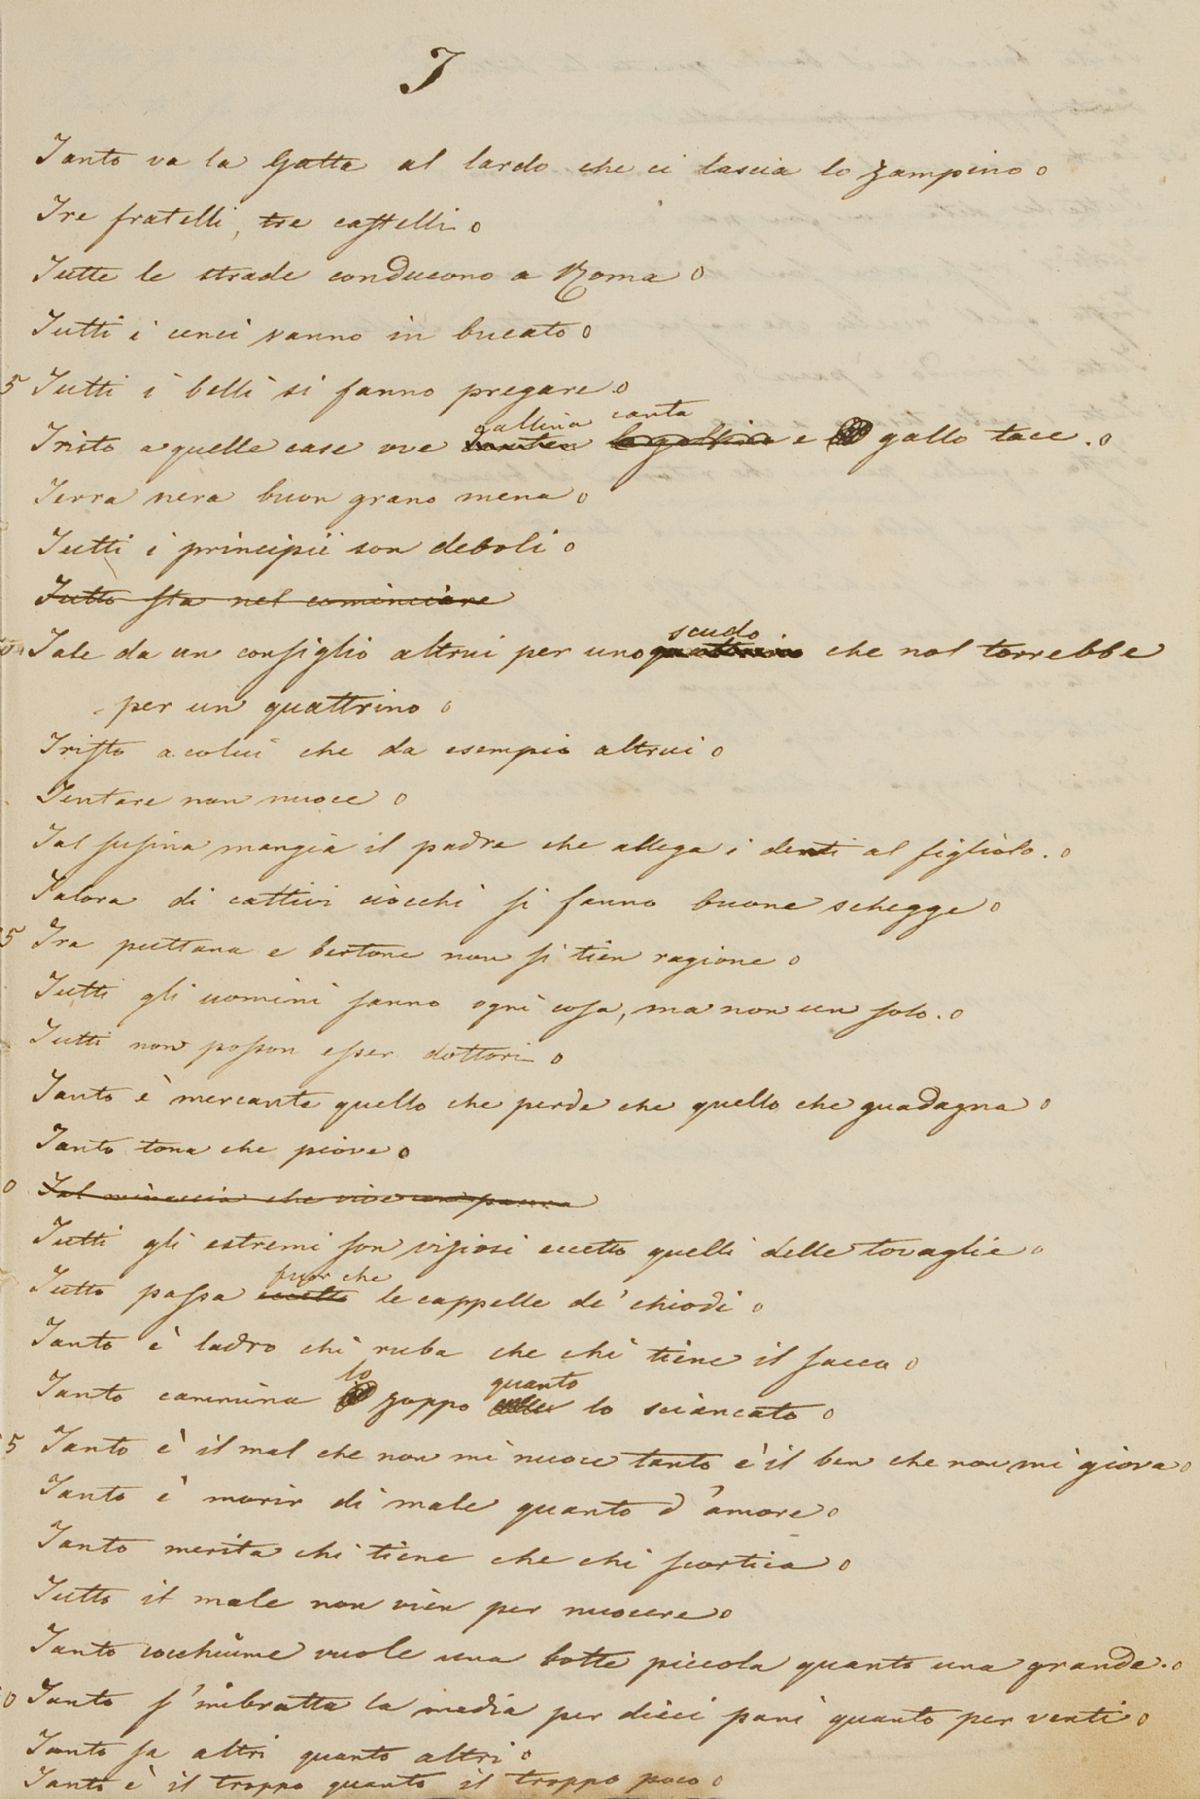 T
Tanto va la Gatta al lardo che ci lascia lo zampino
Tre fratelli, tre castelli
Tutte le strade conducono a Roma
Tutti i cenci vanno in bucato
5 Tutti i belli si fanno pregare
gallina canta
Tristo a quelle case ove la gallina e gallo tace.
Terra nera buon grano mena
Tutti i principii son deboli
Tutto sta nel cominciare
scudo
Tale da un consiglio altrui per uno quattrino che nol torrebbe
per un quattrino
Tristo a colui che da esempio altrui
Tentare non nuoce
Tal susina mangia il padre che allega i denti al figliolo.
Talora di cattivi ciocchi si fanno buone schegge
5 Tra puttana e bertone non si tien ragione
Tutti gli uomini sanno ogni cosa, ma non un solo.
Tutti non posson esser dottori
Tanto è mercante quello che perde che quello che guadagna
Tanto tona che piove
0 Tal minaccia che vive con paura
Tutti gli estremi son viziosi eccetto quelli delle tovaglie
fuor che
Tutto passa eccetto le cappelle de' chiodi
Tanto è ladro chi ruba che chi tiene il sacco
lo quanto
Tanto cammina zoppo lo sciancato
5 Tanto è il mal che non mi nuoce tanto è il ben che non mi giova
Tanto è morir di male quanto d'amore
Tanto merita chi tiene che chi scortica
Tutto il male non vien per nuocere
Tanto cocchiume vuole una botte piccola quanto una grande.
0 Tanto s'imbratta la madia per dieci pani quanto per venti
Tanto sa altri quanto altri
Tanto è il troppo quanto il troppo poco